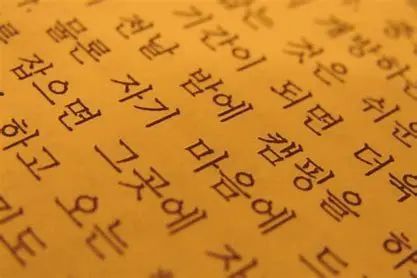 개방하는
는 것은 쉬운
기간이 되면 더욱
전날 밤에 캠핑을 하
물론 자기 마음에 드
잡으면 그곳에 자
하고 오는